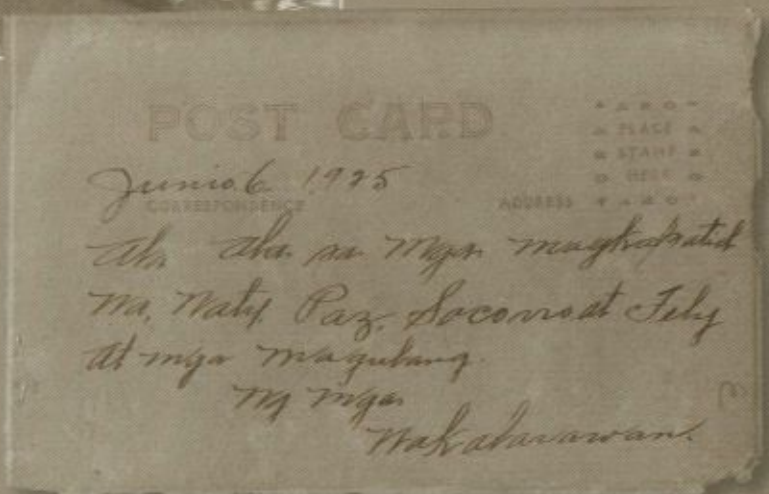 POST CARD
PLACE
STAMP
HERE
Junio 6 1925
CORRESPONDENCE
ADDRESS
Ala Ala sa Mga magkakapatid
Na, Naty, Paz, Socorro at Fely
At mga magulang.
Ng mga
Nakalarawan.